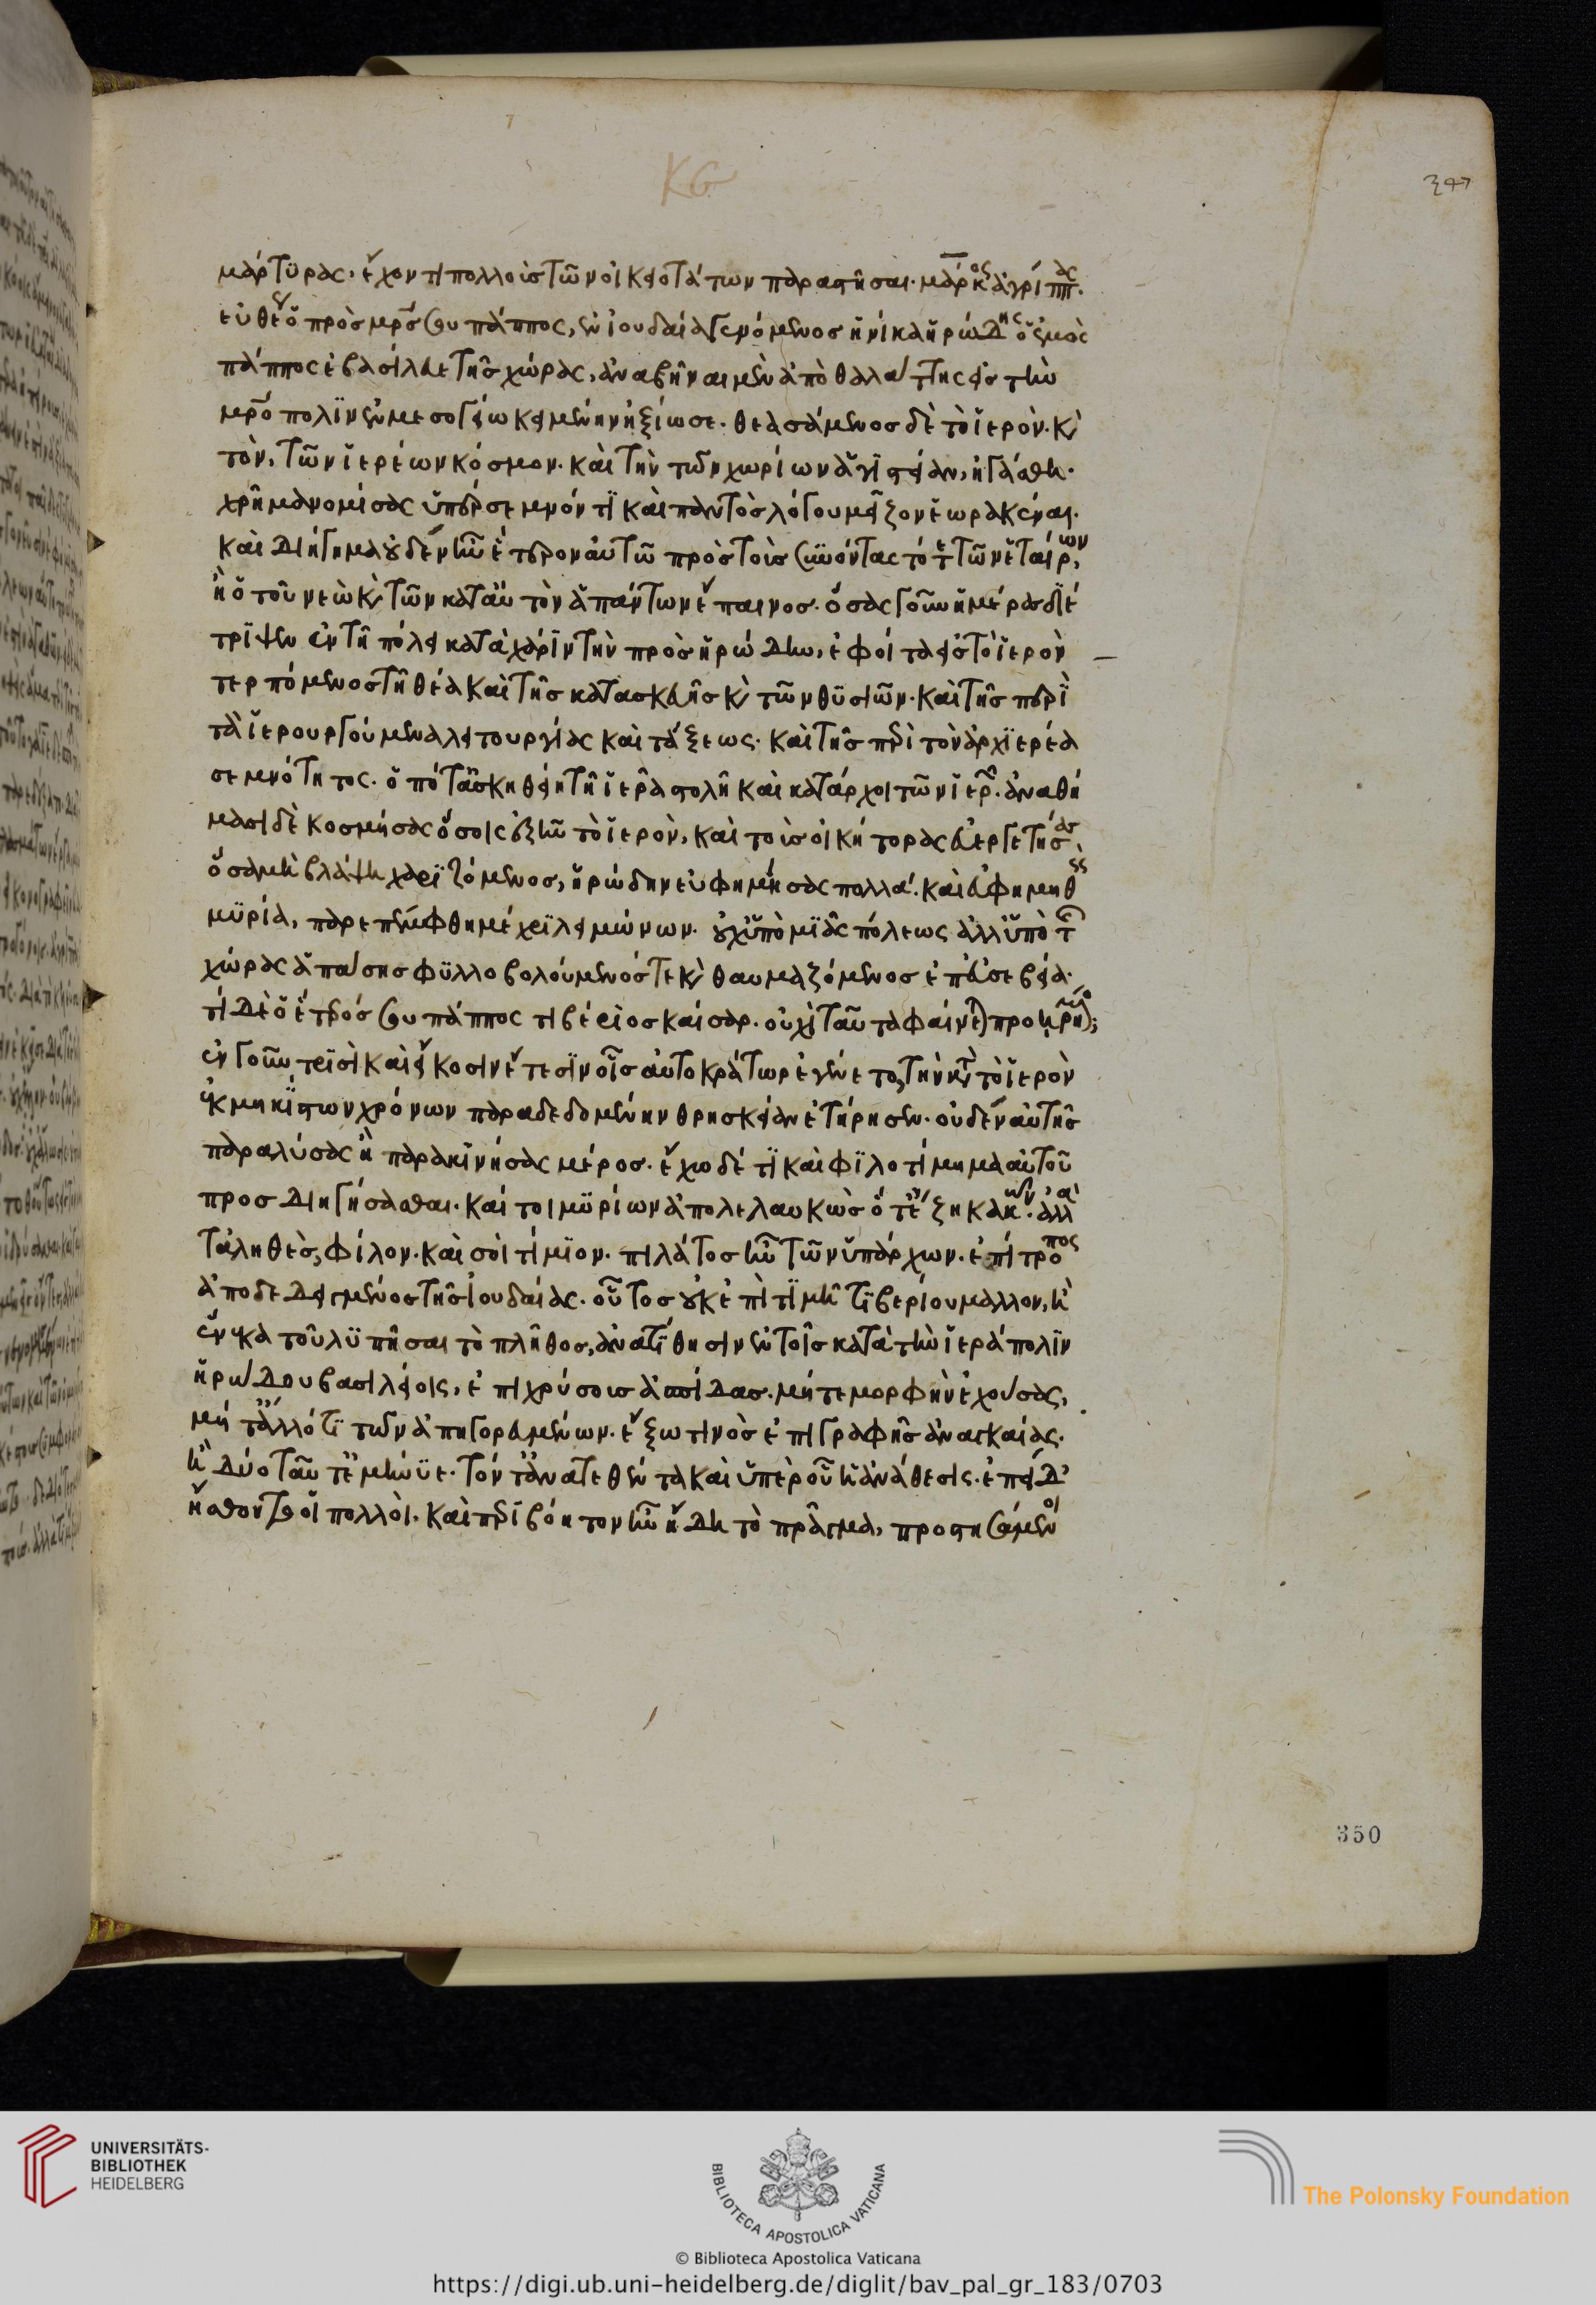 347
μάρτϋρας, ἔχοντι πολλοὺς τῶν οἰκειοτάτων παραστῆσαι. μάρκος ἀγρίππας.
εὐθέως ὁ πρὸς μητρός σου πάππος, ἐν ἰουδαία γενόμενος ἡνίκα ἡρώδης ὁ ἐμὸς
πάππος ἐβασίλευε τῆς χώρας, ἀναβῆναι μὲν ἀπὸ θαλάττης εἰς τὴν
μητρόπολϊν ἐν μεσογείω κειμένην ἠξίωσε. θεασάμενος δὲ τὸ ἱερὸν. καὶ
τὸν, τῶν ἱερέων κόσμον. καὶ τὴν τῶν χωρίων ἁγϊστείαν, ἠγάσθη.
χρῆμα νομίσας ὑπέρσεμνόν τϊ καὶ παντὸς λόγου μεῖζον ἑωρακέναι.
καὶ διήγημα οὐδὲν ἦν ἕτερον αὐτῶ πρὸς τοὺς συνόντας τότε τῶν ἑταίρων,
ἢ ὁ τοῦ νεὼ καὶ τῶν κατ' αὐτὸν ἁπάντων ἔπαινος. ὅσας γοῦν ἡμέρας διέ
τρϊψεν ἐν τῆ πόλει κατὰ χάρϊν τὴν πρὸς ἡρώδην, ἐφοίτα εἰς τὸ ἱερὸν
τερπόμενος τῆ θέα καὶ τῆς κατασκευῆς καὶ τῶν θϋσιῶν. καὶ τῆς περὶ
τὰ ἱερουργούμενα λειτουργίας καὶ τάξεως. καὶ τῆς περὶ τὸν ἀρχϊερέα
σεμνότητος. ὁπότ' ἀσκηθείη τῆ ἱερᾶ στολῆ καὶ κατάρχοι τῶν ἱερῶν. ἀναθή
μασι δὲ κοσμήσας ὅσοις ἐξῆν τὸ ἱερὸν, καὶ τοὺς οἰκήτορας εὐεργετήσας,
ὅσα μὴ βλάψη χαρϊζόμενος, ἡρώδην εὐφημήσας πολλά. καὶ εὐφημηθεὶς
μϋρία, παρεπέμφθη μέχρϊ λειμένων. οὐχ ὑπὸ μϊᾶς πόλεως ἀλλ' ὑπὸ τῆς
χώρας ἁπάσης φϋλλοβολούμενός τε καὶ θαυμαζόμενος ἐπ' εὐσεβεία.
τί δὲ ὁ ἕτερός σου πάππος τιβέριος καίσαρ. οὐχὶ ταῦτα φαίνεται προηρημένος;
ἐν γοῦν τρϊσὶ καὶ εἴκοσιν ἔτεσϊν οἷς αὐτοκράτωρ ἐγένετο, τὴν κατὰ τὸ ἱερὸν
ἐκ μηκίστων χρόνων παραδεδομένην θρησκείαν ἐτήρησεν. οὐδὲν αὐτῆς
παραλύσας ἢ παρακϊνήσας μέρος. ἔχω δέ τϊ καὶ φϊλοτίμημα αὐτοῦ
προσδιηγήσασθαι. καίτοι μϋρίων ἀπολελαυκὼς ὅτ' ἔζη κακῶν. ἀλλὰ
τἀληθὲς, φίλον. καὶ σοὶ τίμϊον. πιλάτος ἦν τῶν ὑπάρχων. ἐπίτροπος
ἀποδεδειγμένος τῆς ἰουδαίας. οὗτος οὐκ ἐπὶ τϊμῆ τϊβερίου μᾶλλον, ἢ
ἕνεκα τοῦ λϋπῆσαι τὸ πλῆθος, ἀνατίθησιν ἐν τοῖς κατὰ τὴν ἱεράπολϊν
ἡρώδου βασιλείοις, ἐπιχρύσους ἀσπίδας. μήτε μορφὴν ἐχούσας,
μήτ' ἄλλό τϊ τῶν ἀπηγορευμένων. ἔξω τινὸς ἐπιγραφῆς ἀναγκαίας.
ἢ δύο ταῦτ' ἐμήνϋε. τόν τ' ἀνατεθέντα καὶ ὑπὲρ οὗ ἡ ἀνάθεσις. ἐπεὶ δ'
ἤσθοντο οἱ πολλοὶ. καὶ περιβόητον ἦν ἤδη τὸ πρᾶγμα, προστησάμενοι
350
UNIVERSITÄTS-
BIBLIOTHEK
HEIDELBERG
BIBLIOTECA APOSTOLICA VATICANA
The Polonsky Foundation
© Biblioteca Apostolica Vaticana
https://digi.ub.uni-heidelberg.de/diglit/bav_pal_gr_183/0703